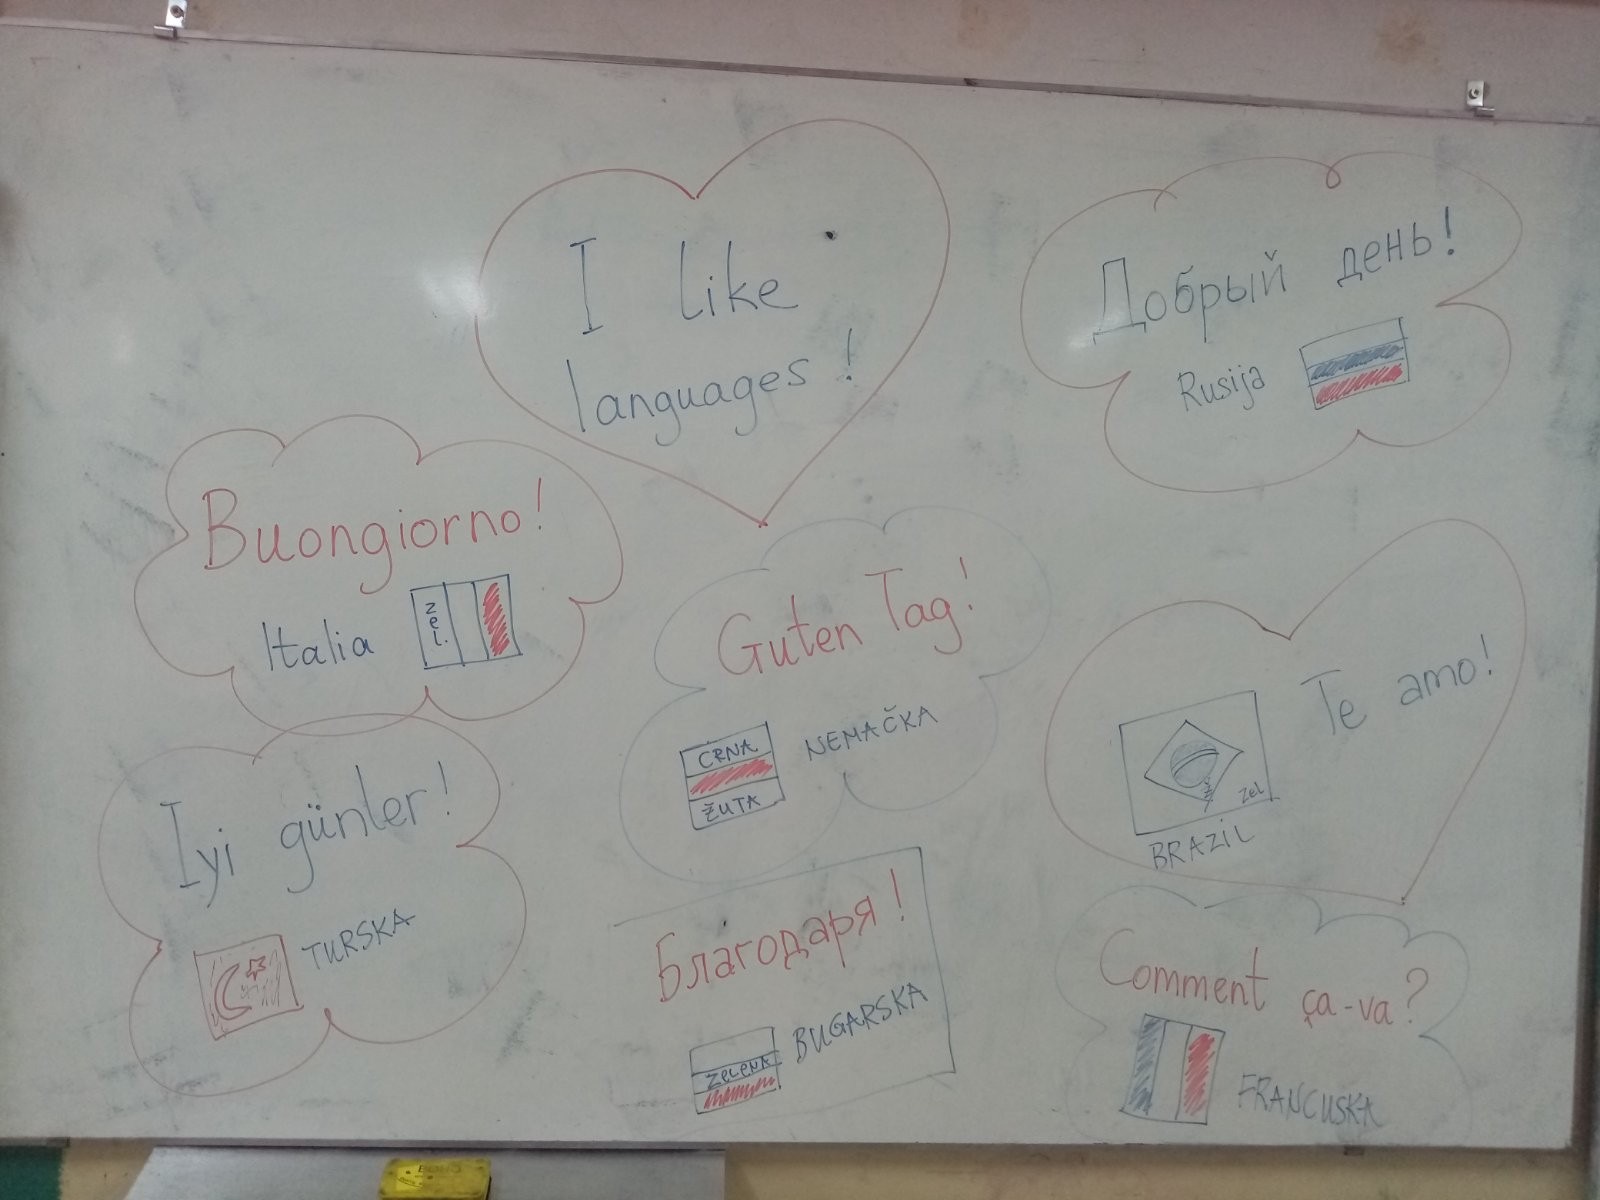 I like
languages!
Добрый день!
Rusija
Buongiorno!
Italia
zel.
Guten Tag!
CRNA
ŽUTA
NEMAČKA
Te amo!
Ž
zel
BRAZIL
Iyi günler!
TURSKA
Благодаря!
ZELENA
BUGARSKA
Comment ça-va?
FRANCUSKA